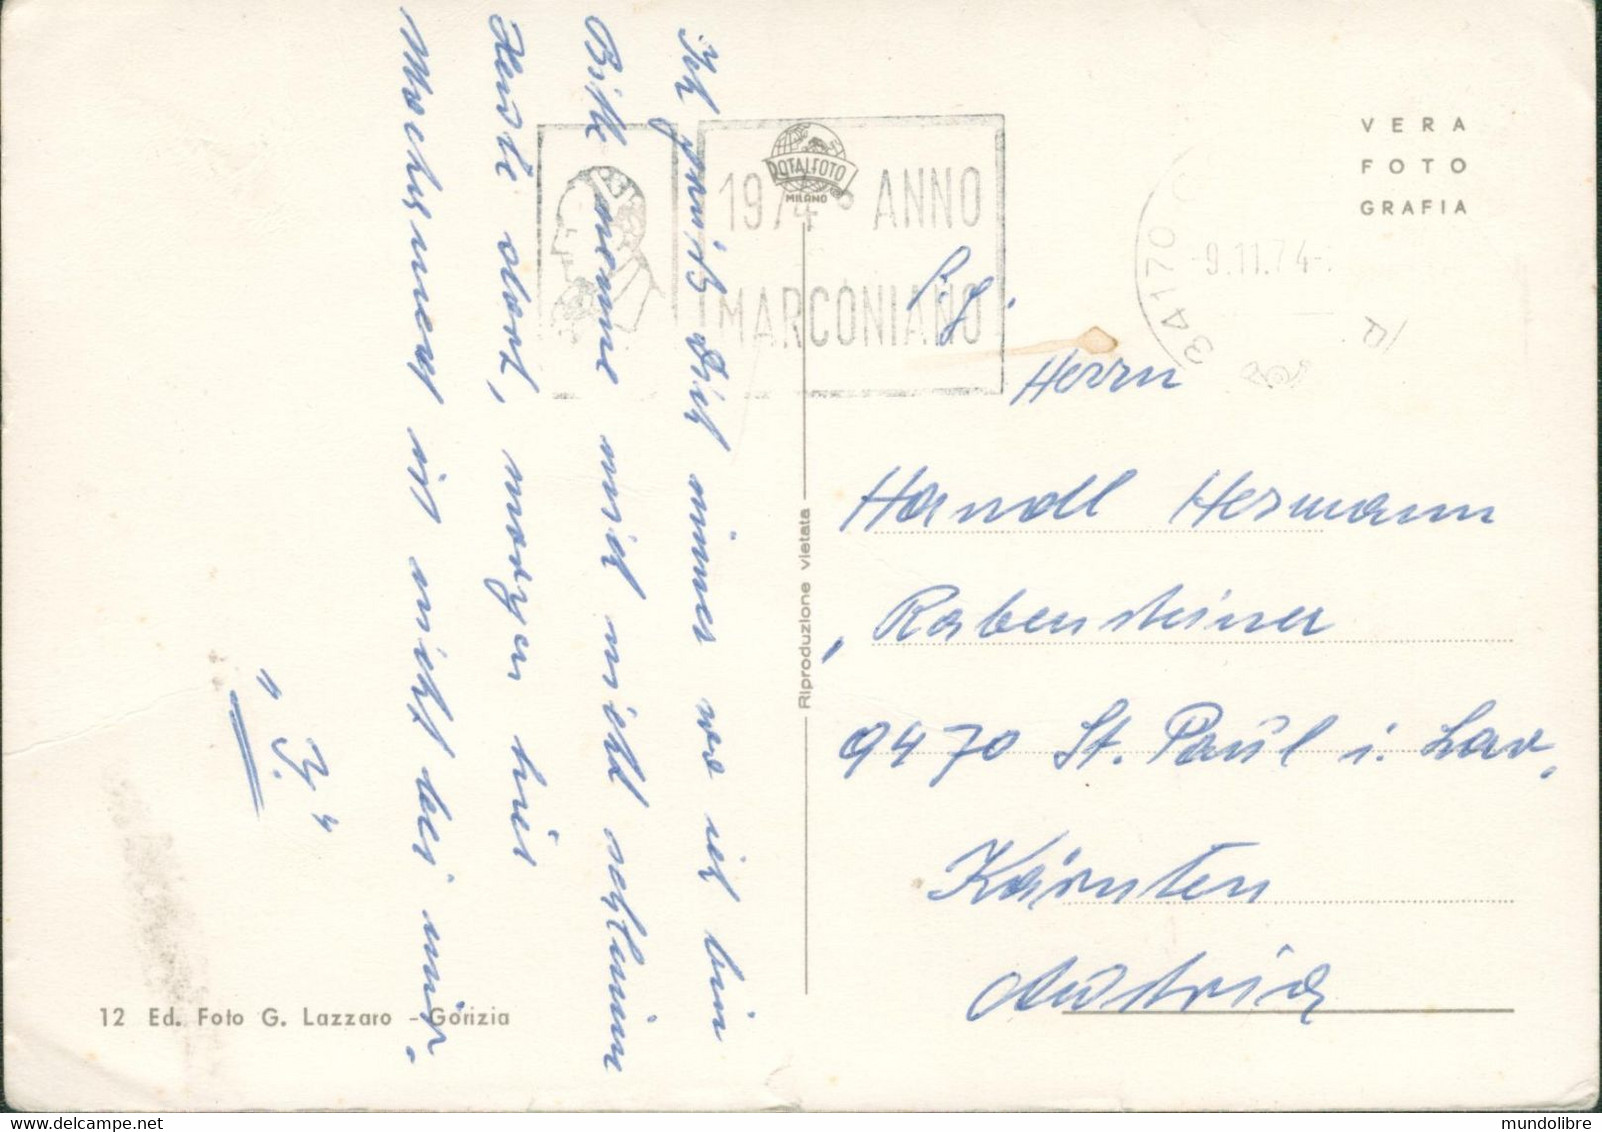 Ich grüß Dich immer wo ich bin
Bitte nimm mich nicht schlimm
Heute dort, morgen hier
Mochsmust ist nicht bei mir.
"Ij"
1974 ANNO
MARCONIANO
ROTALFOTO
MILANO
VERA
FOTO
GRAFIA
34170
9.11.74
Sig.
Herrn
Handl Hermann
Rabensteiner
9470 St. Paul i. Lav.
Kärnten
Austria
Riproduzione vietata
12 Ed. Foto G. Lazzaro - Gorizia
mundolibre